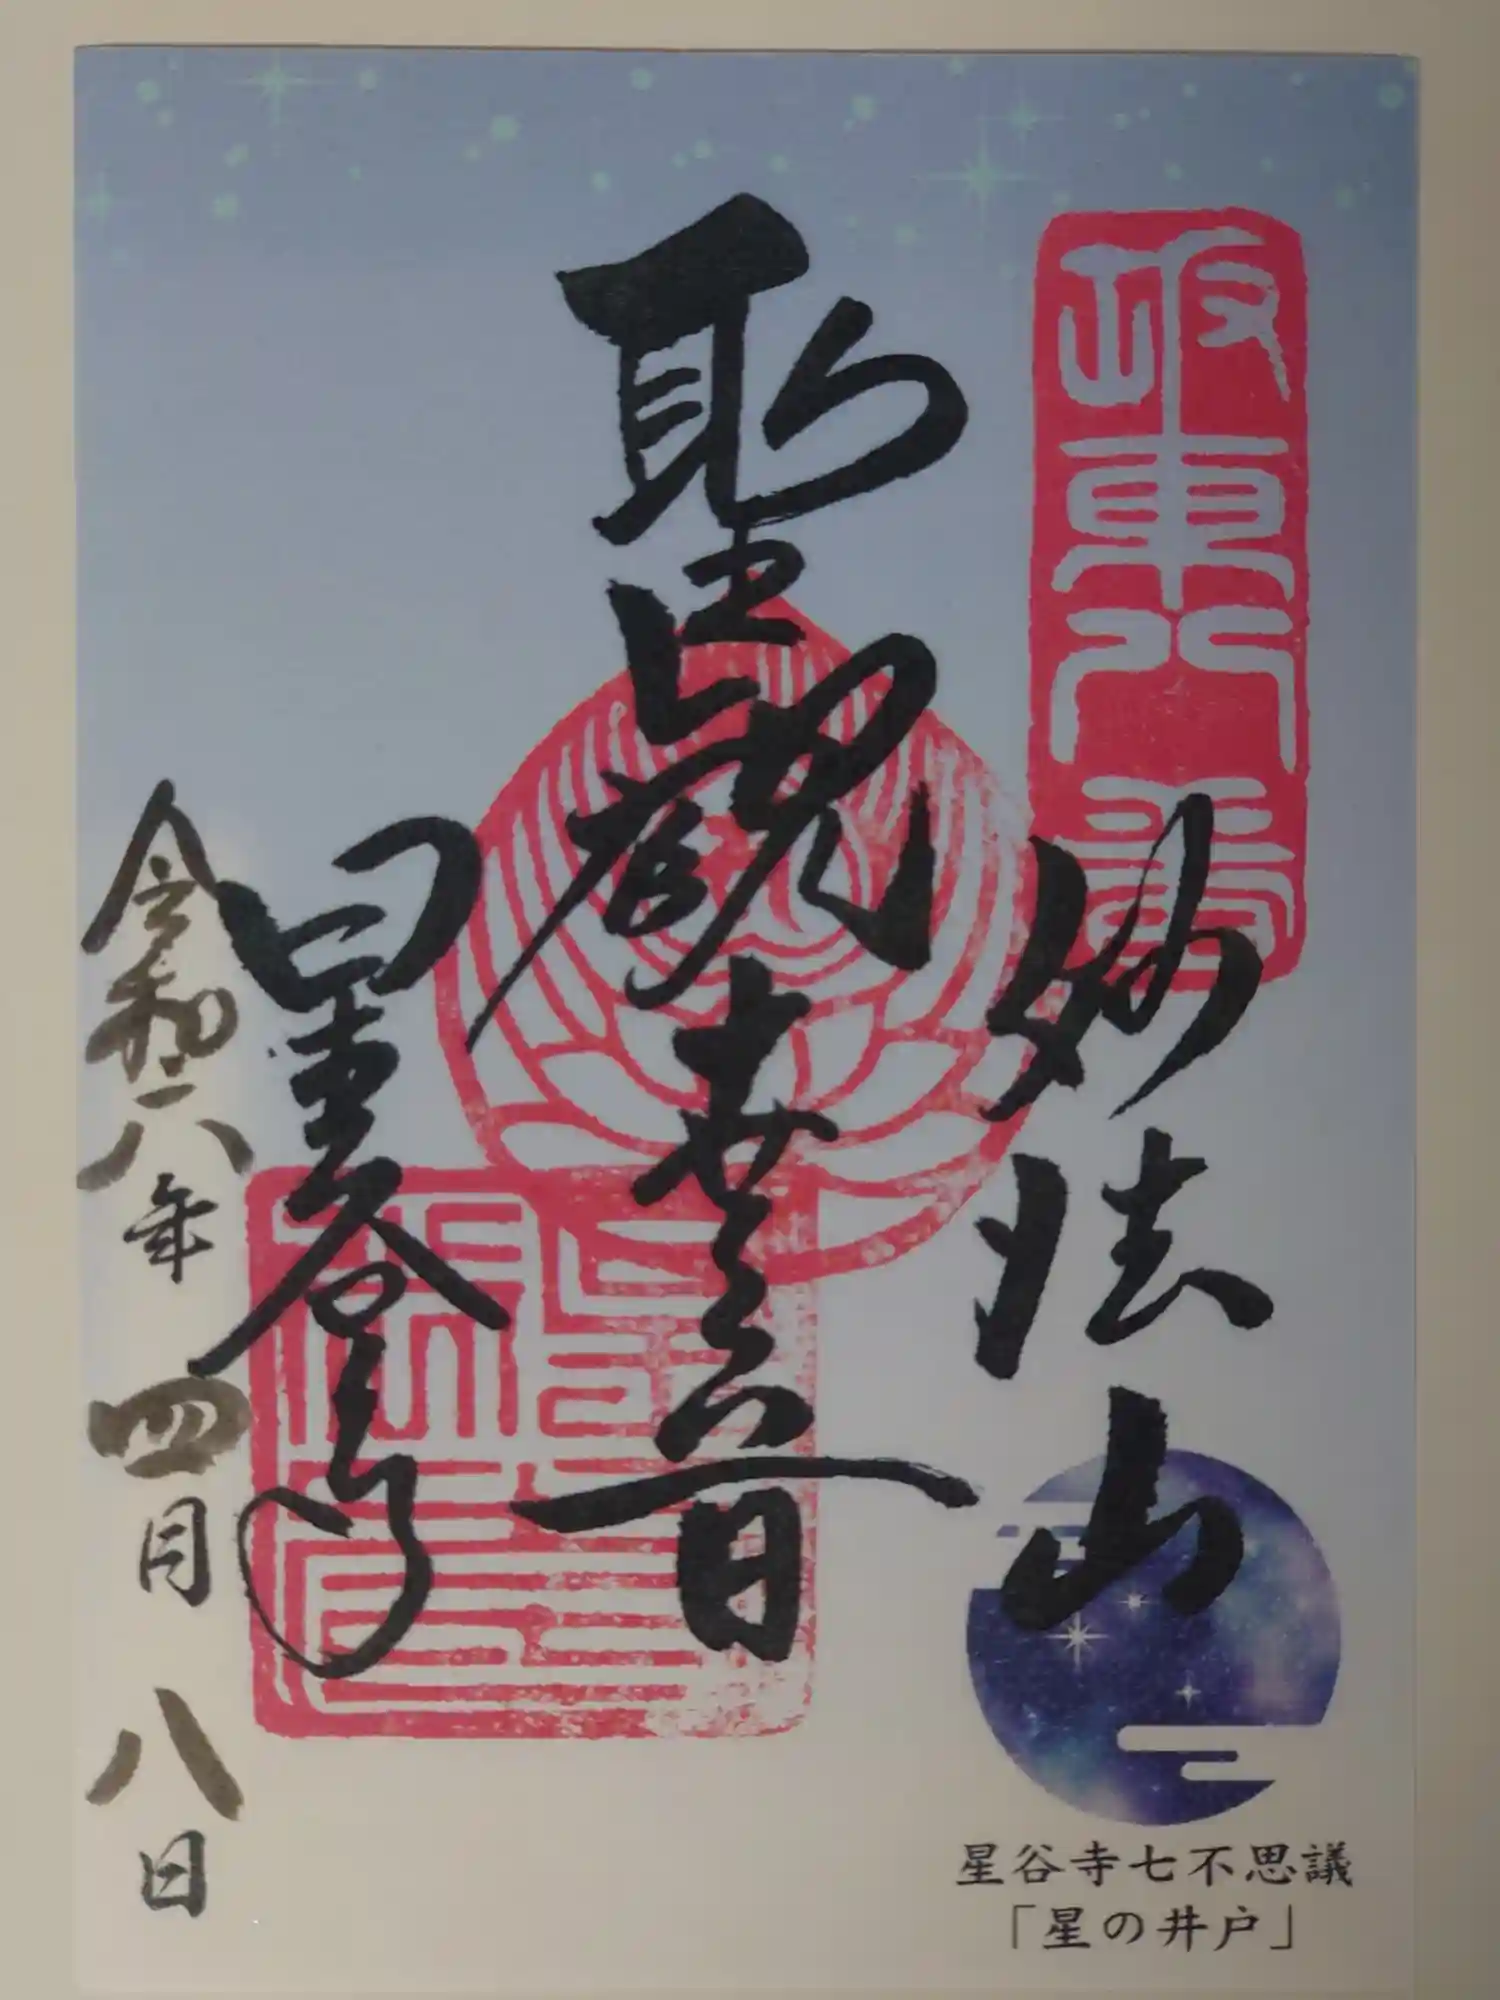 坂東八番
妙法山
聖観世音
星谷寺
令和八年四月八日
星谷寺七不思議
「星の井戸」